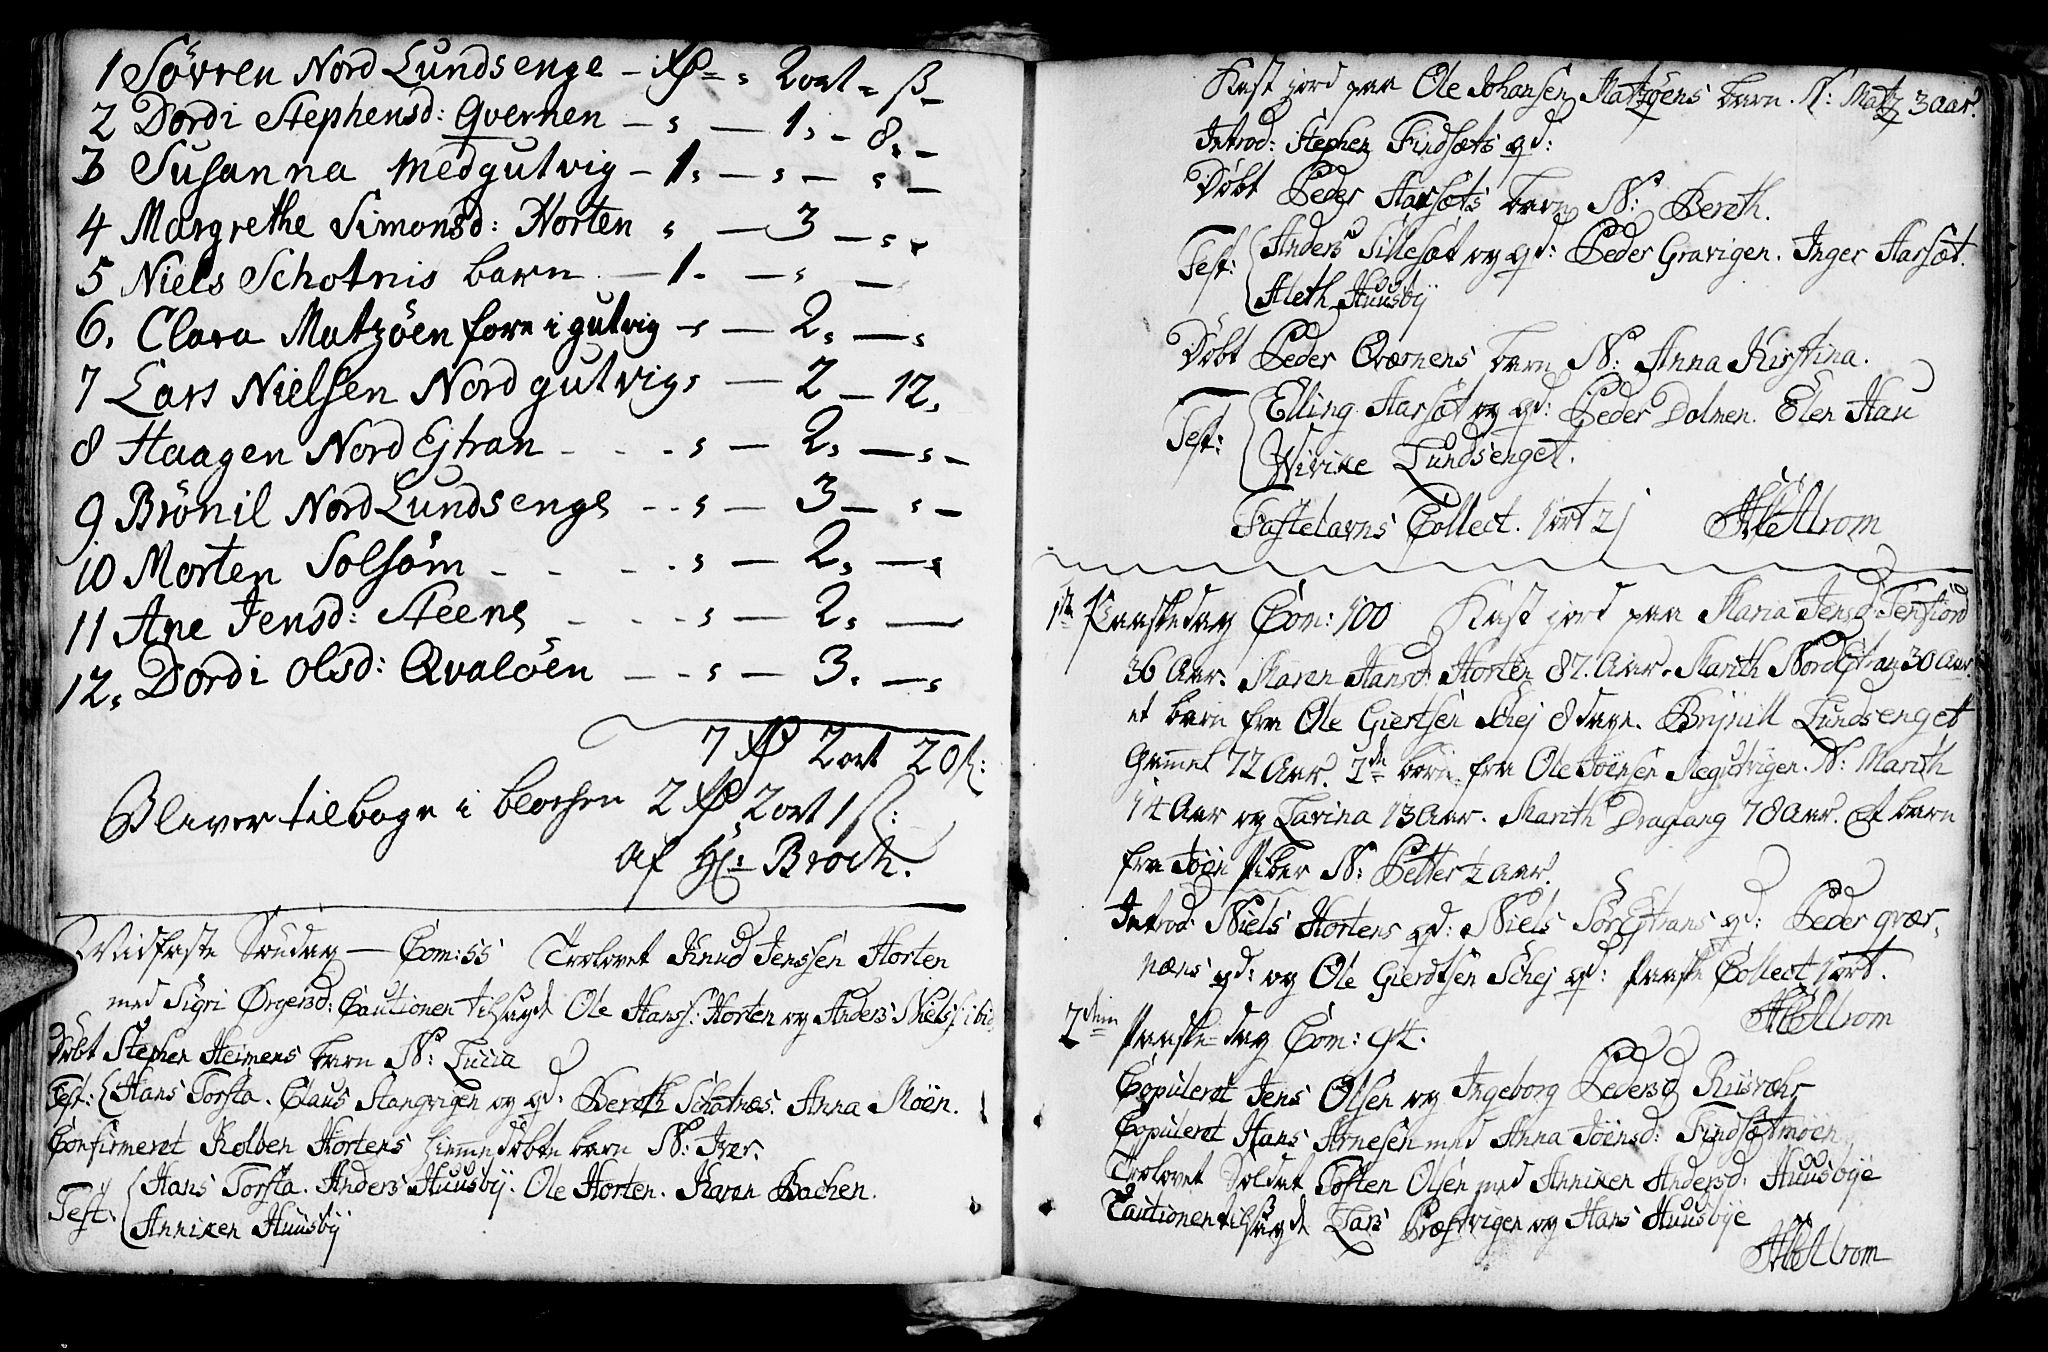 1 Sövren Nord Lundsenge – 1 rdr – " 2 ort – ß –
2 Dordi Stephensd: Qvernen – " – 1. – 8. –
3 Susanna Medgutvig – 1. – " – " –
4 Margrethe Simonsd: Horten " – 3 – " "
5 Niels Schotnis barn – 1. – " –
6. Clara Matzöen fore i gutvig – " – 2. – "
7 Lars Nielsen Nord gutvig " – 2 – 12.
8 Haagen Nord Ejtran - - - " – 2. – " –
9 Brönil Nord Lundsenge - - " – 3 – " –
10 Morten Solsöm - - - - " – 2. – "
11 Ane Jensd: Steene - - - " – 2. –
12. Dordi Olsd: Qvalöen – - " – 3. – "
7 rdr 2 ort 20 ß:
Bliver tilbage i blochen 2 rdr 2 ort 1 ß:
af Hr: Broch.
Midfaste Söndag — Com: 55 Trolovet Knud Jenssen Horten
med Sigri Örgersd: Cautionen tilsagde Ole Hanss: Horten og Anders Nielss: ibid
Döbt Stephen Heimens barn N: Lucia
Test: Hans Torsta. Claus Stangvigen og qd: Bereth Schotnæs. Anna Moen.
Confirmeret Kolben Hortens hiemmedöbte barn N: Iver.
Test: Hans Torsta. Anders Huusbÿ. Ole Horten. Karen Bachen.
Anniken Huusbÿ
Kast jord paa Ole Johansen Matzöens barn. N: Matz 3 Aar.
Introd: Stephen Findsæts qd:
Döbt Peder Aarsæts barn N: Bereth.
Test: Anders Sillesæt og qd: Peder Gravigen. Inger Aarsæt.
Aleth Huusbÿ
Döbt Peder Qværnens barn N: Anna Kirstina.
Test: Elling Aarsæt og qd: Peder Dolmen. Elen Hau
Wivike Lundsenget.
Fastelavns Collect. 1 ort 2 ß
1te Paaskedag Com: 100 Kast jord paa Maria Jensd: Terfiord
36 Aar. Maren Hansd: Horten 87. Aar. Marith Nordejtran 30 Aar.
et barn fra Ole Giertsen Schej 8 dage. Brynill Lundsenget
Gammel 72 Aar. 2de børn fra Ole Joensen Megutvigen. N: Marith
14 Aar og Larina 13 Aar. Marith Dragland 78 Aar. Et barn
fra Joen Piber N: Petter 2 Aar.
Introd: Niels Hortens qd: Niels SörEjtrans qd: Peder qvær-
næns qd: og Ole Gierdtsen Schej qd: Paaske Collect 1 ort.
2den Paaske-dag Com: 94.
Copuleret Jens Olsen og Ingeborg Pedersd Riisvær
Copuleret Hans Arnesen med Anna Joensd: Findsætmoen
Trolovet Soldat Tosten Olsen med Anniken Andersd: Huusbÿe
Cautionen tilsagde Lars Præstvigen og Hans Huusbÿe